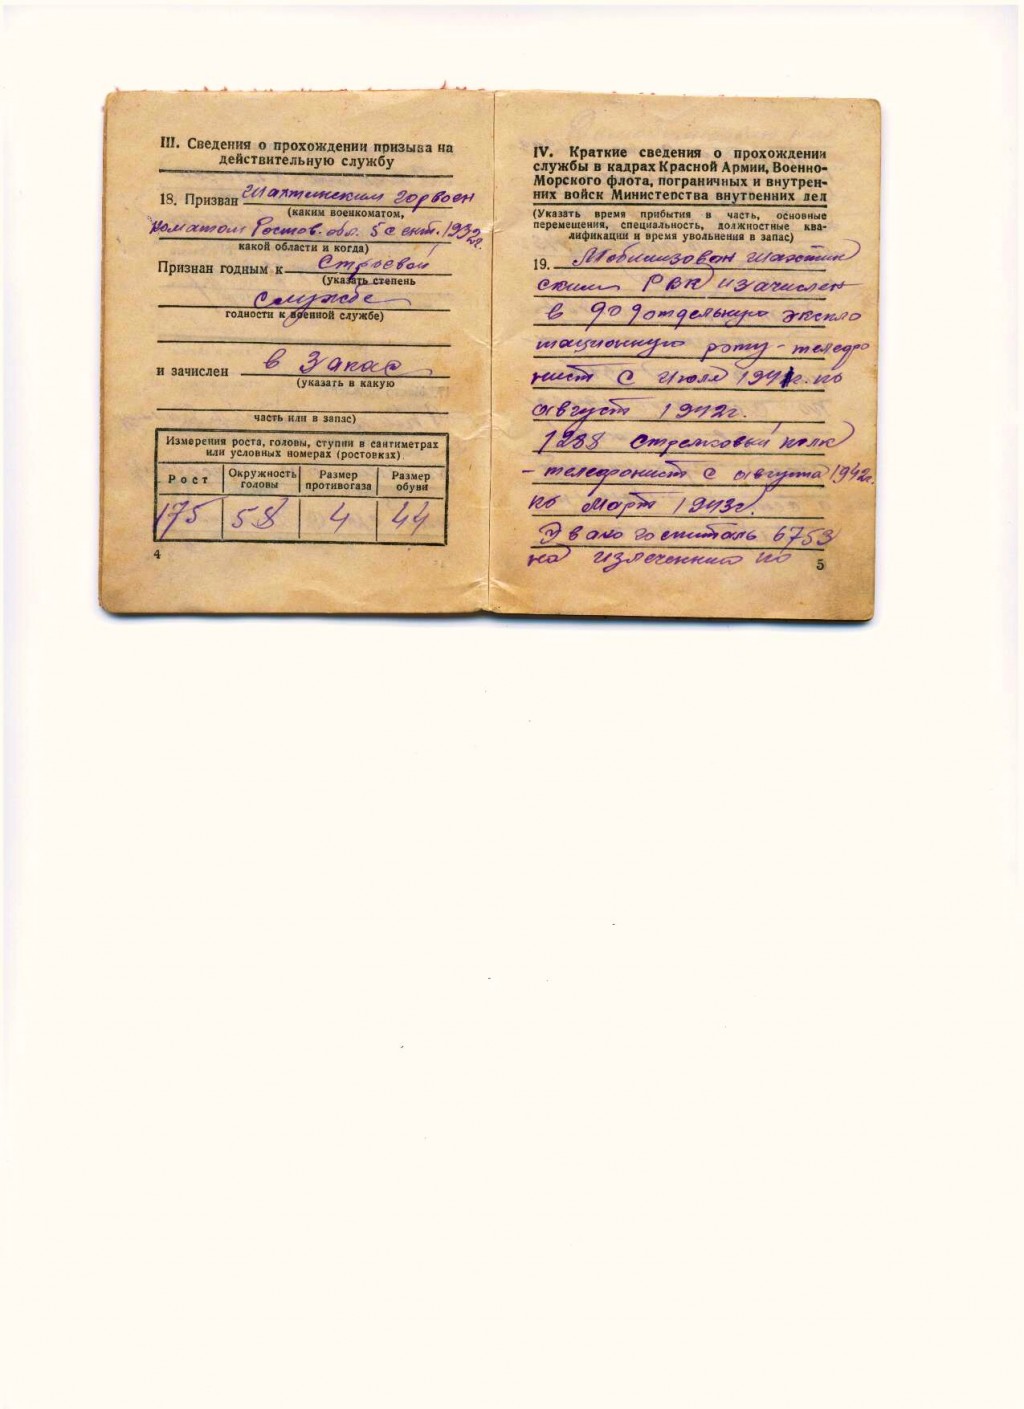 III. Сведения о прохождении призыва на
действительную службу
18. Призван Шахтинским горвоен
(каким военкоматом,
коматом Ростов. обл. 5 сент. 1932г.
какой области и когда)
Признан годным к строевой
(указать степень
службе
годности к военной службе)
и зачислен в запас
(указать в какую
часть или в запас)
Измерения роста, головы, ступни в сантиметрах
или условных номерах (ростовках)
Рост Окружность головы Размер противогаза Размер обуви
175 58 4 44
4
IV. Краткие сведения о прохождении
службы в кадрах Красной Армии, Военно-
Морского флота, пограничных и внутрен-
них войск Министерства внутренних дел
(Указать время прибытия в часть, основные
перемещения, специальность, должностные ква-
лификации и время увольнения в запас)
19. Мобилизован Шахтин
ским РВК и зачислен
в 909 отдельную экспло
тационную роту - телефо
нист с июля 1941г. по
август 1942г.
1288 стрелковый полк
- телефонист с августа 1942г.
по март 1943г.
Эвакогоспиталь 6753
на излечении по
5